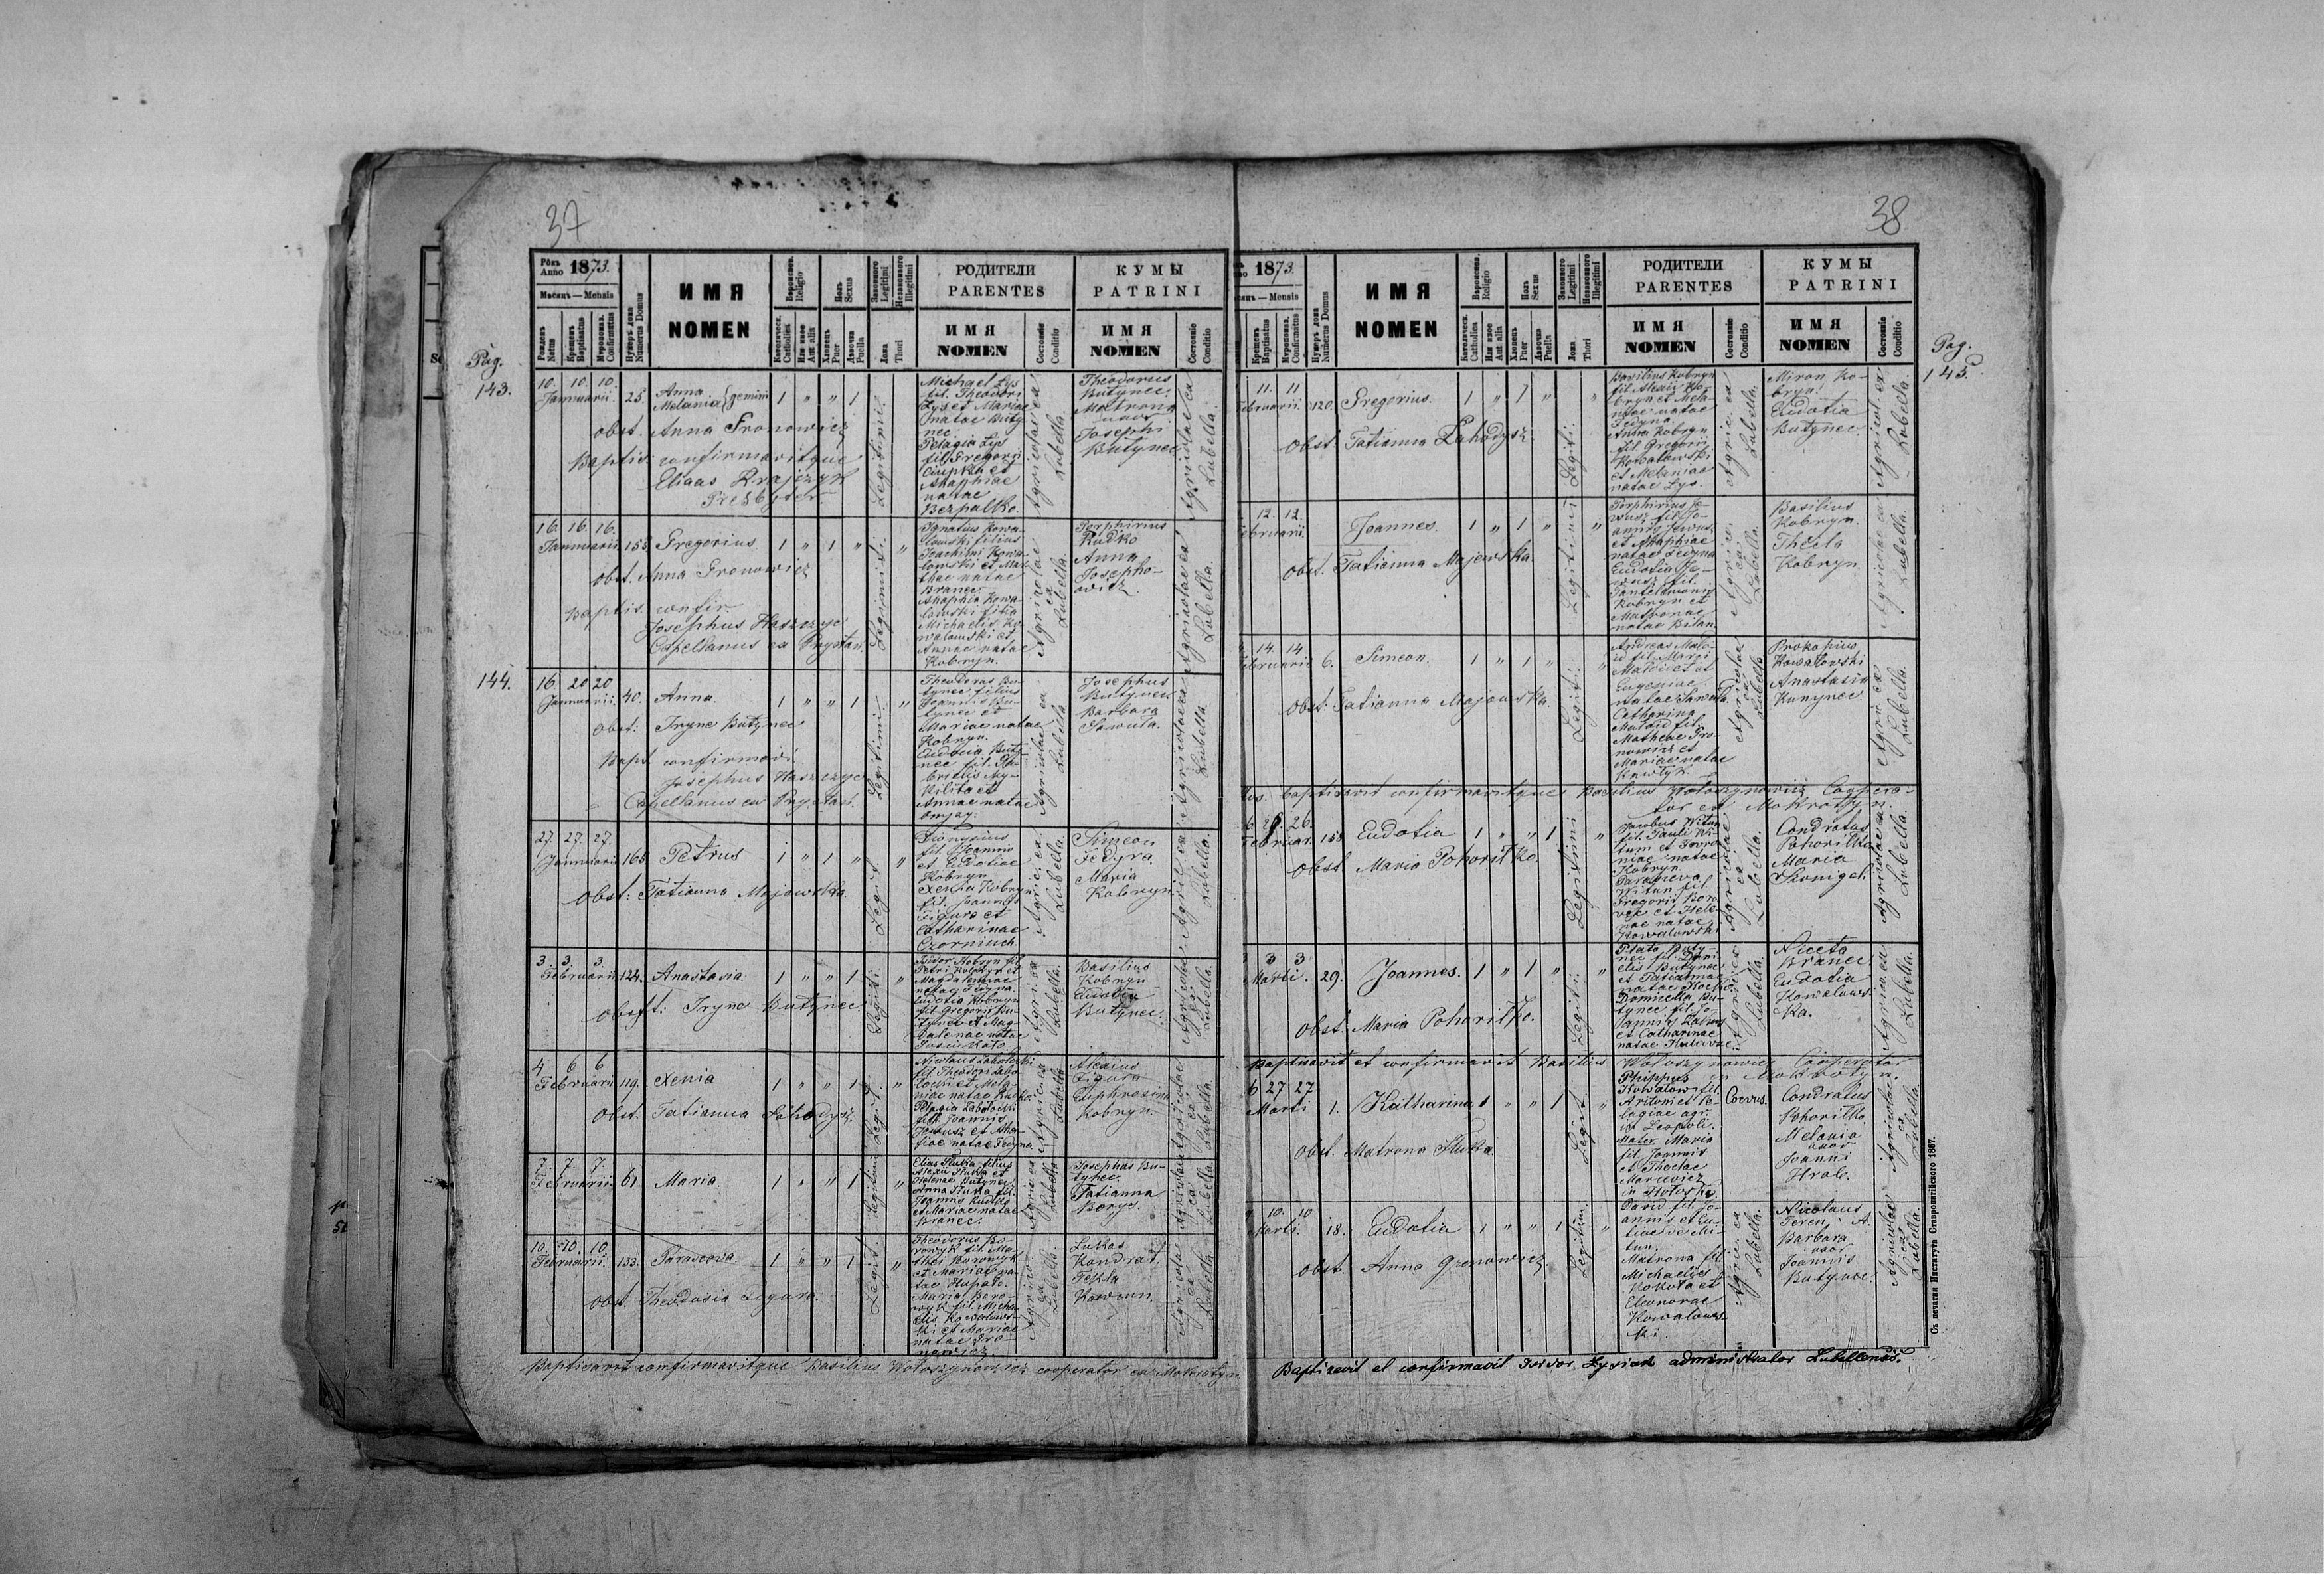 37
Рôкъ Anno 1873.
Мѣсяцъ — Mensis
Рожденъ Natus
Крещенъ Baptisatus
Мѵропомаз. Confirmatus
Нумеръ дома Numerus Domus
ИМЯ
NOMEN
Вѣроиспов. Religio
Католическ. Catholica
Или иное Aut alia
Полъ Sexus
Хлопецъ Puer
Дѣвочка Puella
Законного Legitimi
Незаконного Illegitimi
Ложа Thori
РОДИТЕЛИ
PARENTES
ИМЯ
NOMEN
Состояніе Conditio
КУМЫ
PATRINI
ИМЯ
NOMEN
Состояніе Conditio
Pag.
143.
10. 10. 10.
Januarii. 25. Anna
Melania } gemini 1 " " 1
obst. Anna Gronowicz
Baptis. confirmavitque
Eliaas Krajczyk
Presbyter
Legitimi.
Michael Lys
fil. Theodori
Lys et Mariae
natae Buty-
nec.
Pelagia Lys
fil. Gregorii
Ciupka et
Ahaphiae
natae
Bezpalko.
Agricolae ex
Lubella.
Theodorus
Butynec.
Matrona
uxor
Josephi
Butynec
Agricolae ex
Lubella.
16. 16. 16.
Januarii. 155. Gregorius. 1 " 1 " "
obst. Anna Gronowicz
Baptis. confir.
Josephus Haszczyc
Capellanus ex Prystan.
Legitimi.
Ignatius Kowa-
lowski filius
Joachimi Kowa-
lowski et Mar-
thae natae
Branec.
Ahaphia Kowa-
lowski filia
Michaelis Ko-
walowski et
Annae natae
Kobryn.
Agricolae
ex
Lubella.
Porphirius
Rudko
Anna
Josepho-
witz.
Agricolae ex
Lubella.
144.
16. 20 20
Januarii. 40. Anna. 1 " " 1 "
obst: Iryne Butynec
Bapt. confirmavi
Josephus Haszczyc
Capellanus ex Prystan.
Legitimi.
Theodorus Bu-
tynec filius
Joannis Bu-
tynec et
Mariae natae
Kobryn.
Eudocia Buty-
nec fil. Ga-
brielis My-
kilita et
Annae natae
Agricolae ex
Lubella.
Josephus
Butynec
Barbara
Sawula.
Agricolae ex
Lubella.
27. 27. 27.
Januarii 165 Petrus 1 " 1 " "
obst: Tatianna Majewska.
Legit.
Dionysius
fil. Joannis
et Eudotiae
Kobryn
Xenia Kobryn
fil. Joannis
Figura et
Catharinae
Czorniuch.
Agric. ex
Lubella.
Simeon
Fedyna.
Maria
Kobryn.
Agric. ex
Lubella.
3. 3. 3.
Februarii 124. Anastasia. 1 " " 1 "
obst: Iryne Butynec.
Legiti.
Isidor Kobryn fil.
Petri Kobryn et
Magdalennae
natae Fedyna.
Eudotia Kobryn
fil. Gregorii Bu-
tynec et Mag-
dalenae natae
Agric. ex
Lubella.
Basilius
Kobryn
Eudotia
Butynec.
Agricolae
ex
Lubella.
4 6 6
Februarii 119. Xenia 1 " " 1 "
obst. Tatianna Lahodysz.
Legit.
Nicolaus Zabolocki
fil. Theodori Zabo-
locki et Mela-
niae natae Rudko.
Pelagia Zabolocki
fil. Joannis
Jewusz et Aha-
fiae natae Fedyna.
Agric. ex
Lubella
Alexius
Figura
Euphrosina
Kobryn.
Agricolae
ex
Lubella.
7. 7. 7.
Februarii 61 Maria. 1 " " 1 "
Legitimi
Elias Hluka filius
Alexii Hluka et
Helenae Butynec.
Anna Hluka fil.
Joannis Rudko
et Mariae natae
Branec.
Agric ex
Lubella
Josephus Bu-
tynec.
Tatianna
Borys.
Agricolae
ex
Lubella
10. 10. 10.
Februarii. 133. Parascewa. 1 " " 1 "
obst. Theodosia Figura.
Legit.
Theodorus Bo-
rowyk fil. Ma-
thei Borowyk
et Mariae na-
tae Hupalo.
Maria Boro-
wyk fil. Micha-
elis Kowalows-
ki et Mariae
natae Gro-
nowicz
Agric.
ex
Lubella
Lukas
Kondrat.
Tekla
Kowcun.
Agricolae
ex
Lubella.
Baptisavit confirmavitque Basilius Woloszynowicz cooperator ex Mokrotyn
38
1873.
Мѣсяцъ — Mensis
Крещенъ Baptisatus
Мѵропомаз. Confirmatus
Нумеръ дома Numerus Domus
ИМЯ
NOMEN
Вѣроиспов. Religio
Католическ. Catholica
Или иное Aut alia
Полъ Sexus
Хлопецъ Puer
Дѣвочка Puella
Законного Legitimi
Незаконного Illegitimi
Ложа Thori
РОДИТЕЛИ
PARENTES
ИМЯ
NOMEN
Состояніе Conditio
КУМЫ
PATRINI
ИМЯ
NOMEN
Состояніе Conditio
Pag.
145.
11. 11
Februarii. 120. Gregorius. 1 " 1 " "
obst. Tatianna Lahodysz.
Legiti.
Basilius Kobryn
fil. Alexii Ko-
bryn et Mela-
niae natae
Fedyna.
Anna Kobryn
fil. Gregorii
Kowalowski
et Melaniae
natae Lys.
Agric. ex
Lubella.
Miron Ko-
bryn.
Eudotia
Butynec.
Agricol. ex
Lubella.
12. 12.
Februarii. Joannes. 1 " 1 " "
obst. Tatianna Majewska.
Legitimi
Porphirius Je-
wusz fil. Jo-
annis Jewusz
et Ahaphiae
natae Fedyna
Eudotia Je-
wusz fil.
Pantelemonis
Kobryn et
Matronae
natae Bilan.
Agric.
ex
Lubella.
Basilius
Kobryn.
Thecla
Kobryn.
Agricolae ex
Lubella.
14. 14
Februarii 6. Simeon. 1 " 1 " "
obst: Tatianna Majewska.
Legiti.
Andreas Malo-
id fil. Marci
Maloid et
Eugeniae
natae Sawula.
Catharina
Maloid fil.
Matheae Gro-
nowicz et
Mariae natae
Kawlyk
Agricolae
ex
Lubella
Prokopius
Kowalowski
Anastasia
Kunynec.
Agric. ex
Lubella.
baptisavit confirmavitque Basilius Woloszynowicz Coopera-
tor ex Mokrotyn.
26. 26.
Februar. 158 Eudotia 1 " " 1 "
obst Maria Pohorilko.
Legitimi
Jacobus Witun
fil. Pauli Wi-
tun et Irro-
niae natae
Kobryn.
Parasceva
Witun fil.
Gregorii Bon-
et Hele-
nae natae
Kowalowski
Agricolae
ex
Lubella.
Condratus
Pohorilko
Maria
Agricolae ex
Lubella.
3 3
Marti. 29. Joannes. 1 " 1 " "
obst. Maria Pohorilko.
Legiti.
Plato Buty-
nec fil. Dani-
elis Butynec
et Tatiannae
natae
Domicella Bu-
tynec fil. Jo-
annis
et Catharinae
natae
Agricolae
Lubella.
Niceta
Branec.
Eudotia
Kowalows-
ka.
Agric. ex
Lubella.
Baptisavit et confirmavit Basilius Woloszynowicz Cooperator
ex Mokrotyn.
6 27 27
Marti 1. Katharina 1 " " 1 "
obst. Matrona Hluka.
Legit
Phippus
Kowalow fil.
Antoni et Pe-
lagiae agr.
in Leopoli.
Mater Maria
fil. Joannis
et Theclae
Marcewicz
in Holosko.
Condratus
Pohorilko.
Melania
uxor
Joanni
Hrab.
Agricolae
ex
Lubella.
10. 10
Marti. 18. Eudotia 1 " " 1 "
obst. Anna Gronowicz.
Legitim.
David fil. Jo-
annis et Lu-
ciae de Mi-
tun.
Matrona fil.
Michaelis
Kokota et
Eleonorae
Kowalows-
ki.
Agric. ex
Lubella.
Nicolaus
Feren, A.
Barbara
uxor
Joannis
Butynec.
Agricolae
ex
Lubella.
Baptizavit et confirmavit Isidor Lysiak administrator Lubellensis.
Съ печатни Института Ставропигійского 1867.